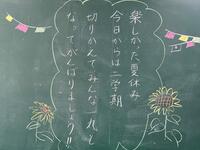 楽しかった夏休み
今日からは二学期
切りかえてみんなで元気に
なってがんばりましょう!!